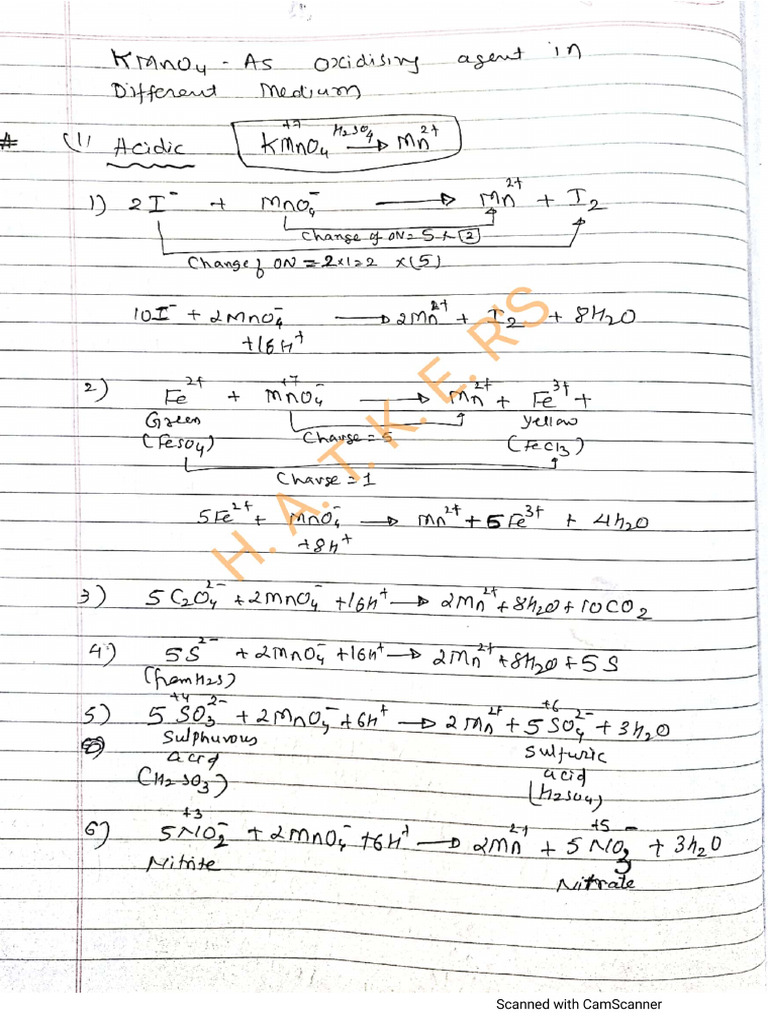 KMnO4 - As Oxidising agent in
Different Medium
(1) Acidic KMnO4 (+7) H2SO4 → Mn2+
1) 2I⁻ + MnO4⁻ → Mn2+ + I2
Change of ON = 5 × 2
Change of ON = 2×1=2 ×(5)
10I⁻ + 2MnO4⁻ → 2Mn2+ + I2 + 8H2O
+16H+
2) Fe2+ + MnO4⁻ (+7) → Mn2+ + Fe3+ +
Green Yellow
(FeSO4) Change = 5 (FeCl3)
Change = 1
5Fe2+ + MnO4⁻ → Mn2+ + 5Fe3+ + 4H2O
+8H+
3) 5C2O4²⁻ + 2MnO4⁻ + 16H+ → 2Mn2+ + 8H2O + 10CO2
4) 5S²⁻ + 2MnO4⁻ + 16H+ → 2Mn2+ + 8H2O + 5S
(from H2S)
+4 +6
5) 5SO3²⁻ + 2MnO4⁻ + 6H+ → 2Mn2+ + 5SO4²⁻ + 3H2O
Sulphurous Sulfuric
acid acid
(H2SO3) (H2SO4)
+3 +5
6) 5NO2⁻ + 2MnO4⁻ + 6H+ → 2Mn2+ + 5NO3⁻ + 3H2O
Nitrite Nitrate
H. A. T. K. E. R'S
Scanned with CamScanner